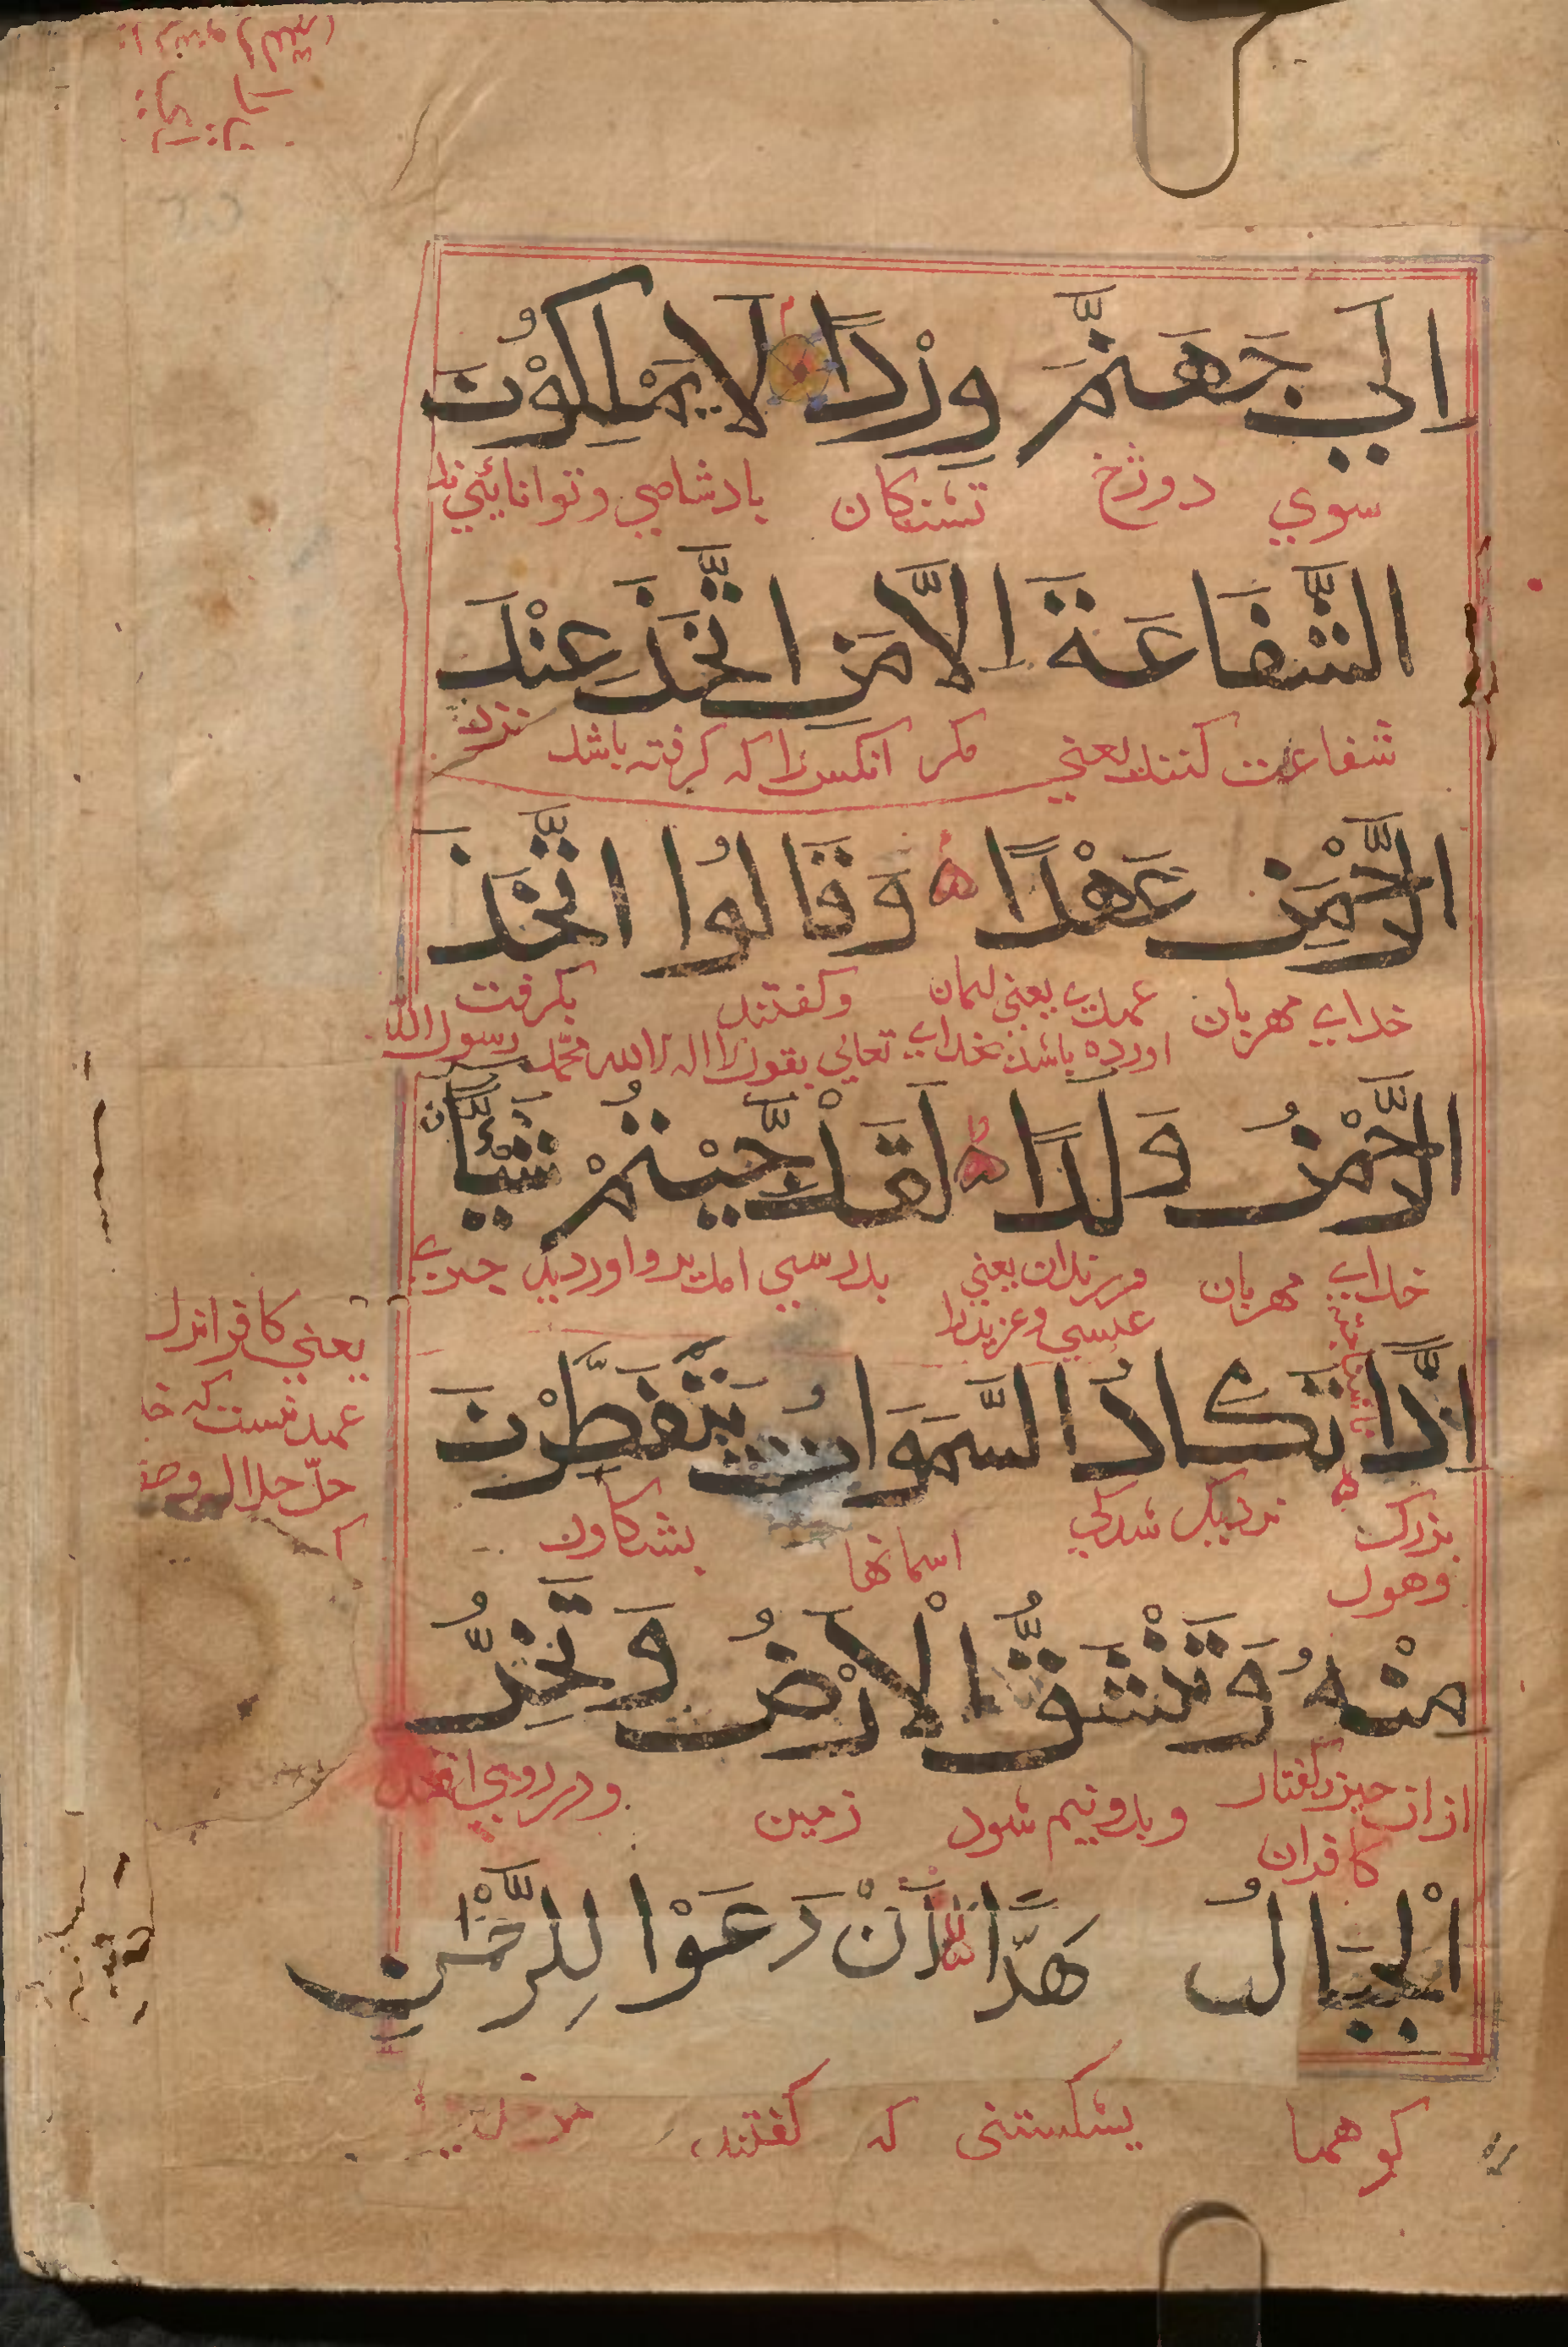 اِلٰي جَهَنَّمَ وِرْدًا لَا يَمْلِكُوْنَ
سوي دوزخ تشنكان بادشاهي و توانايئي
الشَّفَاعَةَ اِلَّا مَنِ اتَّخَذَ عِنْدَ
شفاعت كنند يعني مكر انكس را كه كرفته باشد نزد
الرَّحْمٰنِ عَهْدًا وَقَالُوا اتَّخَذَ
خداي مهربان عهدي يعني ايمان وكفتند بكرفت
اورده باشد بخداي تعالي بقول لا اله الا الله محمّد رسول اللّه
الرَّحْمٰنُ وَلَدًا لَقَدْ جِيْتُمْ شَيْئًا
خداي مهربان فرزندان يعني بدرستي امديد و اورديد چيزي
عيسي و عزير را
اِدًّا تَكَادُ السَّمَوَاتُ يَتَفَطَّرْنَ
بزرك نزديك شدكي اسمانها بشكاون
وهول
مِنْهُ وَتَنْشَقُّ الْاَرْضُ وَتَخِرُّ
ازان چيز كفتار وبدو نيم شود زمين ودر روي افتد
كافران
الْجِبَالُ هَدًّا اَنْ دَعَوْا لِلرَّحْمٰنِ
كوهها بشكستني كه كفتند
يعني كافر انرا
عهد نيست كه
جلّ جلاله و